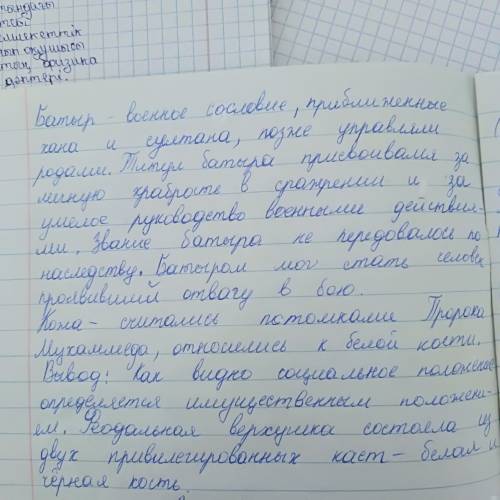 тындағы
тебі
емлекеттік
ып оқушысы
тың физика
дәптері.
Батыр - военное сословие, приближенные
хана и султана, позже управляли
родами. Титул батыра присвоивался за
личную храбрость в сражении и за
умелое руководство военными действия-
ми. Звание батыра не передовалось по
наследству. Батыром мог стать человек
проявивший отвагу в бою.
Кожа - считались потомками Пророка
Мухаммеда, относились к белой кости.
Вывод: Как видно социальное положение
определяется имущественным положени-
ем. Феодальная верхушка состояла из
двух привилегированных каст - белая и
чёрная кость.